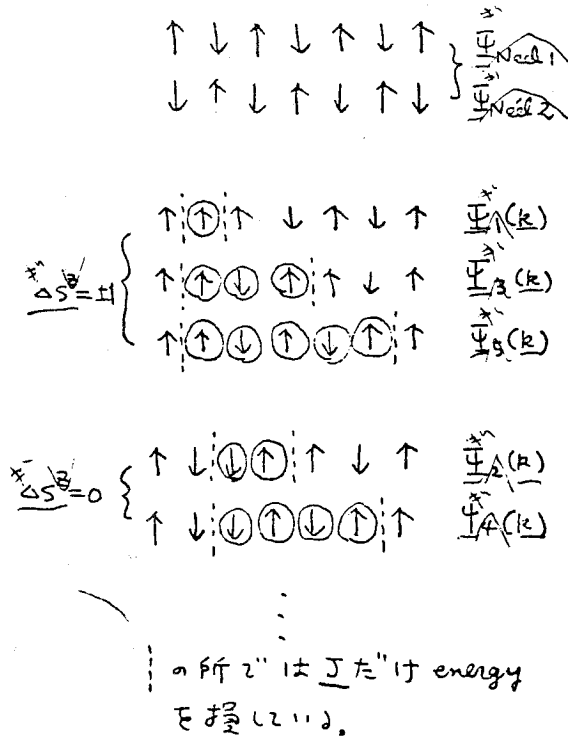 ↑ ↓ ↑ ↓ ↑ ↓ ↑ } Ψ Néel 1
↓ ↑ ↓ ↑ ↓ ↑ ↓ } Ψ Néel 2
ΔS^z=±1
↑ ¦ ↑ ¦ ↑ ↓ ↑ ↓ ↑ Ψ1(k)
↑ ¦ ↑ ↓ ↑ ¦ ↑ ↓ ↑ Ψ3(k)
↑ ¦ ↑ ↓ ↑ ↓ ↑ ¦ ↑ Ψ5(k)
ΔS^z=0
↑ ↓ ¦ ↓ ↑ ¦ ↑ ↓ ↑ Ψ2(k)
↑ ↓ ¦ ↓ ↑ ↓ ↑ ¦ ↑ Ψ4(k)
⋮
¦ の所では J だけ energy
を損している。